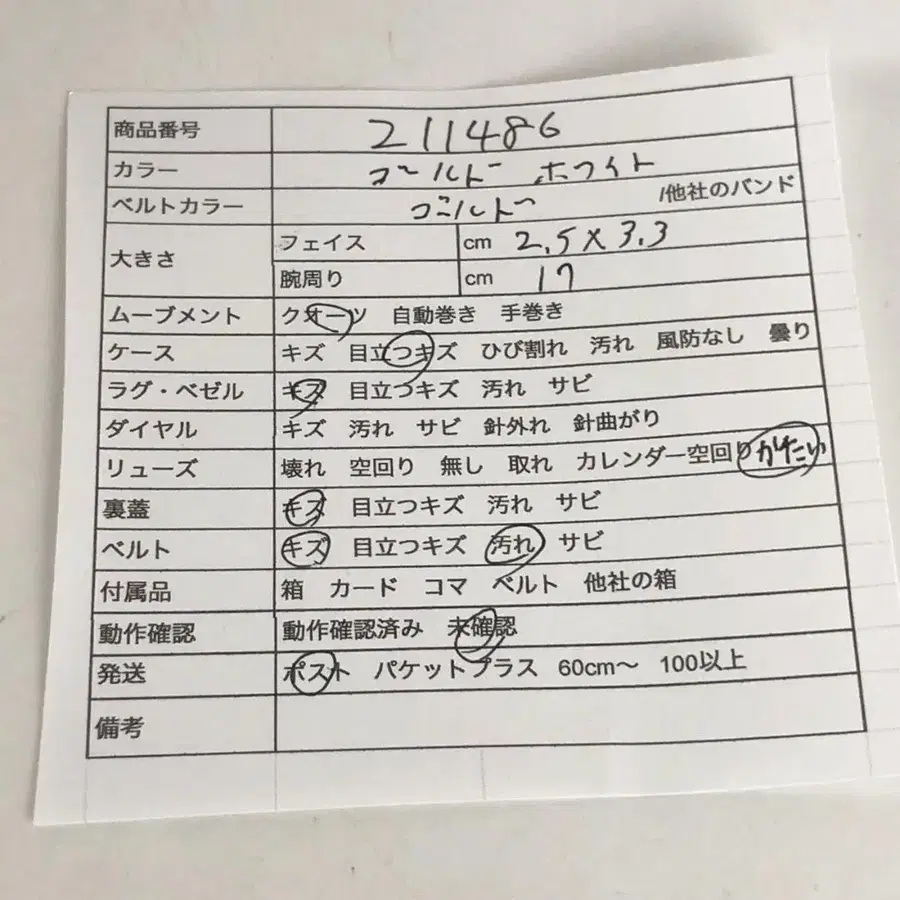 商品番号 211486
カラー ゴールド ホワイト
ベルトカラー ゴールド /他社のバンド
大きさ フェイス cm 2.5×3.3
腕周り cm 17
ムーブメント クオーツ 自動巻き 手巻き
ケース キズ 目立つキズ ひび割れ 汚れ 風防なし 曇り
ラグ・ベゼル キズ 目立つキズ 汚れ サビ
ダイヤル キズ 汚れ サビ 針外れ 針曲がり
リューズ 壊れ 空回り 無し 取れ カレンダー空回り かたい
裏蓋 キズ 目立つキズ 汚れ サビ
ベルト キズ 目立つキズ 汚れ サビ
付属品 箱 カード コマ ベルト 他社の箱
動作確認 動作確認済み 未確認
発送 ポスト パケットプラス 60cm〜 100以上
備考